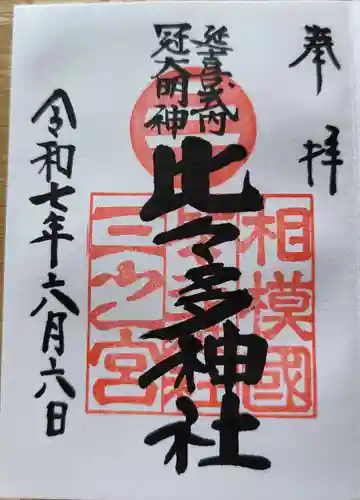 奉拝
延喜式内
冠大明神
比々多神社
相模國
三之宮
令和七年六月六日